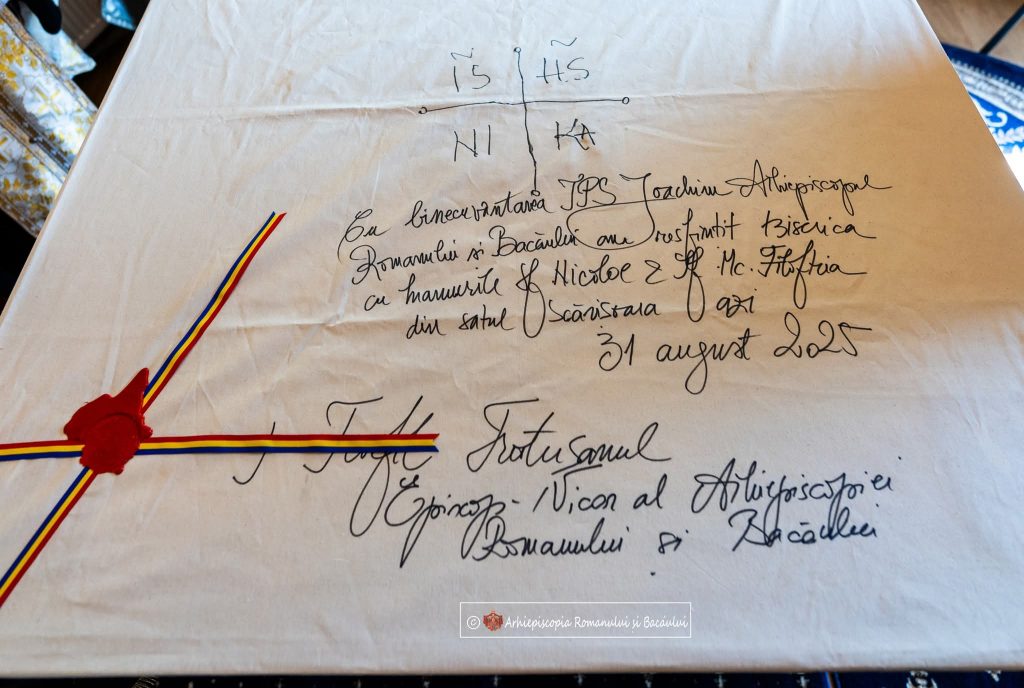 ĨS H̃S
NI KA
Cu binecuvântarea ÎPS Ioachim Arhiepiscopul
Romanului si Bacăului am resfintit Biserica
cu hramurile Sf Nicolae & Sf. Mc. Filofteia
din satul Scărisoara azi
31 august 2025
† Teofil Trotusanul
Episcop-Vicar al Arhiepiscopiei
Romanului si Bacăului
© Arhiepiscopia Romanului si Bacăului